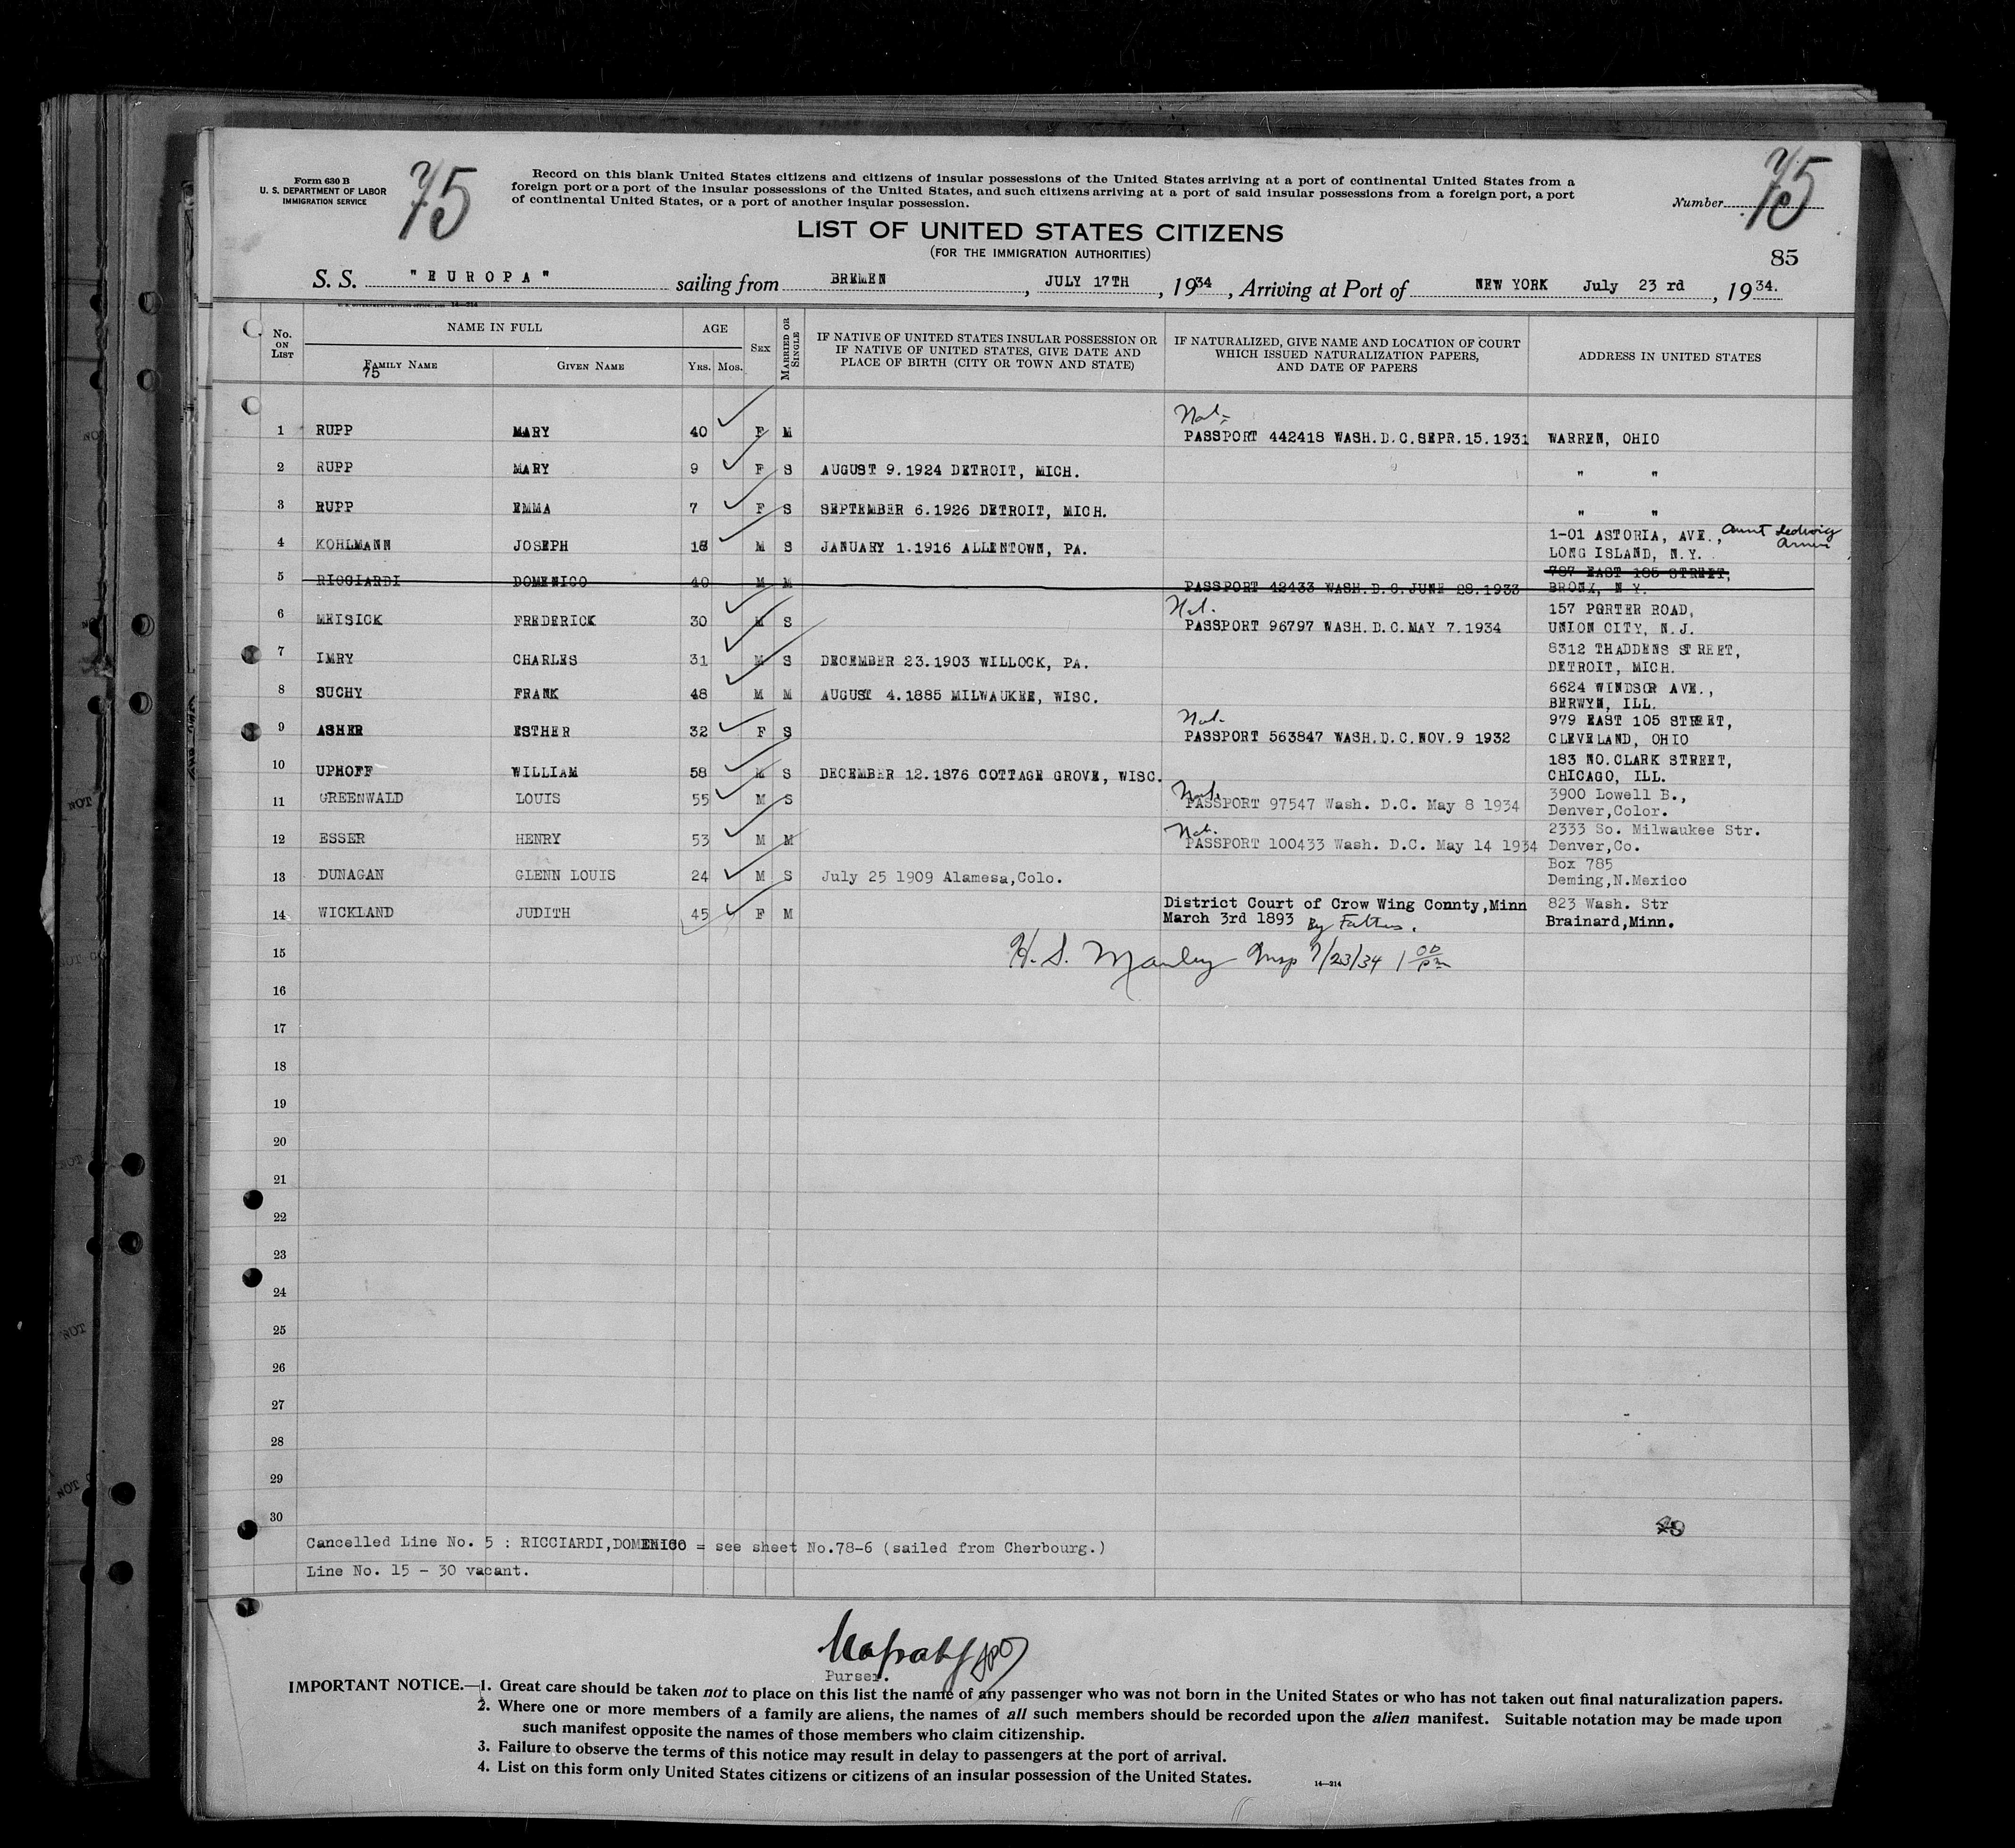 Form 630 B
U. S. DEPARTMENT OF LABOR
IMMIGRATION SERVICE
75
Record on this blank United States citizens and citizens of insular possessions of the United States arriving at a port of continental United States from a
foreign port or a port of the insular possessions of the United States, and such citizens arriving at a port of said insular possessions from a foreign port, a port
of continental United States, or a port of another insular possession.
Number 75
LIST OF UNITED STATES CITIZENS
(FOR THE IMMIGRATION AUTHORITIES)
85
S. S. "EUROPA" sailing from BREMEN, JULY 17TH, 1934, Arriving at Port of NEW YORK July 23 rd, 1934.
No. ON LIST
NAME IN FULL
FAMILY NAME
75
GIVEN NAME
AGE
YRS. MOS.
SEX
MARRIED OR SINGLE
IF NATIVE OF UNITED STATES INSULAR POSSESSION OR
IF NATIVE OF UNITED STATES, GIVE DATE AND
PLACE OF BIRTH (CITY OR TOWN AND STATE)
IF NATURALIZED, GIVE NAME AND LOCATION OF COURT
WHICH ISSUED NATURALIZATION PAPERS,
AND DATE OF PAPERS
ADDRESS IN UNITED STATES
Nat-
1 RUPP MARY 40 F M PASSPORT 442418 WASH.D.C.SEPR.15.1931 WARREN, OHIO
2 RUPP MARY 9 F S AUGUST 9.1924 DETROIT, MICH. " "
3 RUPP EMMA 7 F S SEPTEMBER 6.1926 DETROIT, MICH. " "
4 KOHLMANN JOSEPH 18 M S JANUARY 1.1916 ALLENTOWN, PA. 1-01 ASTORIA, AVE., Aunt Hedwig
LONG ISLAND, N.Y.
5 RICCIARDI DOMENICO 40 M M PASSPORT 42433 WASH.D.C.JUNE 28.1933 787 EAST 185 STREET,
BRONX, N Y.
Nat.
6 MEISICK FREDERICK 30 M S PASSPORT 96797 WASH.D.C.MAY 7.1934 157 PORTER ROAD,
UNION CITY, N.J.
7 IMRY CHARLES 31 M S DECEMBER 23.1903 WILLOCK, PA. 8312 THADDENS STREET,
DETROIT, MICH.
8 SUCHY FRANK 48 M M AUGUST 4.1885 MILWAUKEE, WISC. 6624 WINDSOR AVE.,
BERWYN, ILL.
Nat.
9 ASHER ESTHER 32 F S PASSPORT 563847 WASH.D.C.NOV.9 1932 979 EAST 105 STREET,
CLEVELAND, OHIO
10 UPHOFF WILLIAM 58 M S DECEMBER 12.1876 COTTAGE GROVE, WISC. 183 NO.CLARK STREET,
CHICAGO, ILL.
Nat.
11 GREENWALD LOUIS 55 M S PASSPORT 97547 Wash. D.C. May 8 1934 3900 Lowell B.,
Denver,Color.
Nat.
12 ESSER HENRY 53 M M PASSPORT 100433 Wash. D.C. May 14 1934 2333 So. Milwaukee Str.
Denver,Co.
13 DUNAGAN GLENN LOUIS 24 M S July 25 1909 Alamesa,Colo. Box 785
Deming,N.Mexico
14 WICKLAND JUDITH 45 F M District Court of Crow Wing Connty,Minn 823 Wash. Str
March 3rd 1893 By Father. Brainard,Minn.
15 H. S. Manley Insp 7/23/34 1 00 pm
16
17
18
19
20
21
22
23
24
25
26
27
28
29
30
Cancelled Line No. 5 : RICCIARDI,DOMENICO = see sheet No.78-6 (sailed from Cherbourg.)
Line No. 15 - 30 vacant.
Purser.
IMPORTANT NOTICE.—1. Great care should be taken not to place on this list the name of any passenger who was not born in the United States or who has not taken out final naturalization papers.
2. Where one or more members of a family are aliens, the names of all such members should be recorded upon the alien manifest. Suitable notation may be made upon
such manifest opposite the names of those members who claim citizenship.
3. Failure to observe the terms of this notice may result in delay to passengers at the port of arrival.
4. List on this form only United States citizens or citizens of an insular possession of the United States.
14—214